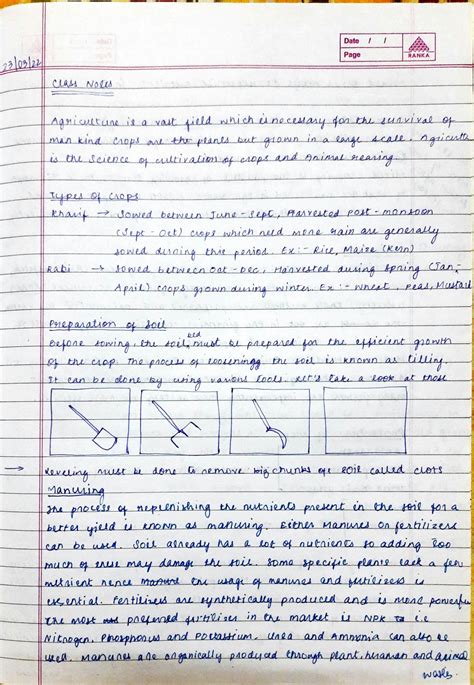 Date / /
Page
RANKA
23/03/22
Class Notes
Agriculture is a vast field which is necessary for the survival of
man kind crops are the plants but grown in a large scale. Agricultr
is the science of cultivation of crops and Animal rearing.
Types of Crops
Kharif → Sowed between June - Sept, Harvested Post - monsoon
(Sept - Oct) crops which need more rain are generally
sowed during this period. Ex :- Rice, Maize
Rabi → Sowed between Oct - Dec, Harvested during Spring (Jan-
April) crops grown during winter. Ex :- Wheat, Peas, Mustard
Preparation of Soil
Before sowing, the soil bed must be prepared for the efficient growth
of the crop. The process of loosening the soil is known as tilling.
It can be done by using various tools. Let's take a look at those
→ Leveling must be done to remove big chunks of soil called clots
Manuring
The process of replenishing the nutrients present in the soil for a
better yield is known as manuring. Either Manures or fertilizers
can be used. Soil already has a lot of nutrients so adding too
much of these may damage the soil. Some specific plants lack a few
nutrient hence the usage of manures and fertilizers is
essential. Fertilizers are synthetically produced and is more powerful
The most preferred fertiliser in the market is NPK i.e
Nitrogen, Phosphorus and Potassium. Urea and Ammonia can also be
used. Manures are organically produced through plant, human and animal
wastes.